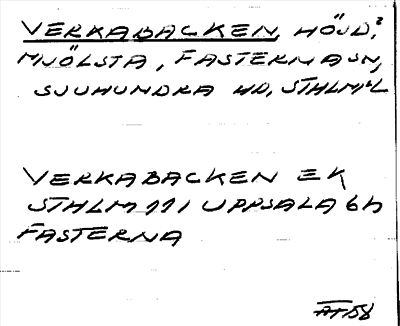 VERKABACKEN, HÖJD?
MJÖLSTA, FASTERNA SN,
SJUHUNDRA HD, STHLMS L
VERKABACKEN EK
STHLM 111 UPPSALA 6h
FASTERNA
AT-58